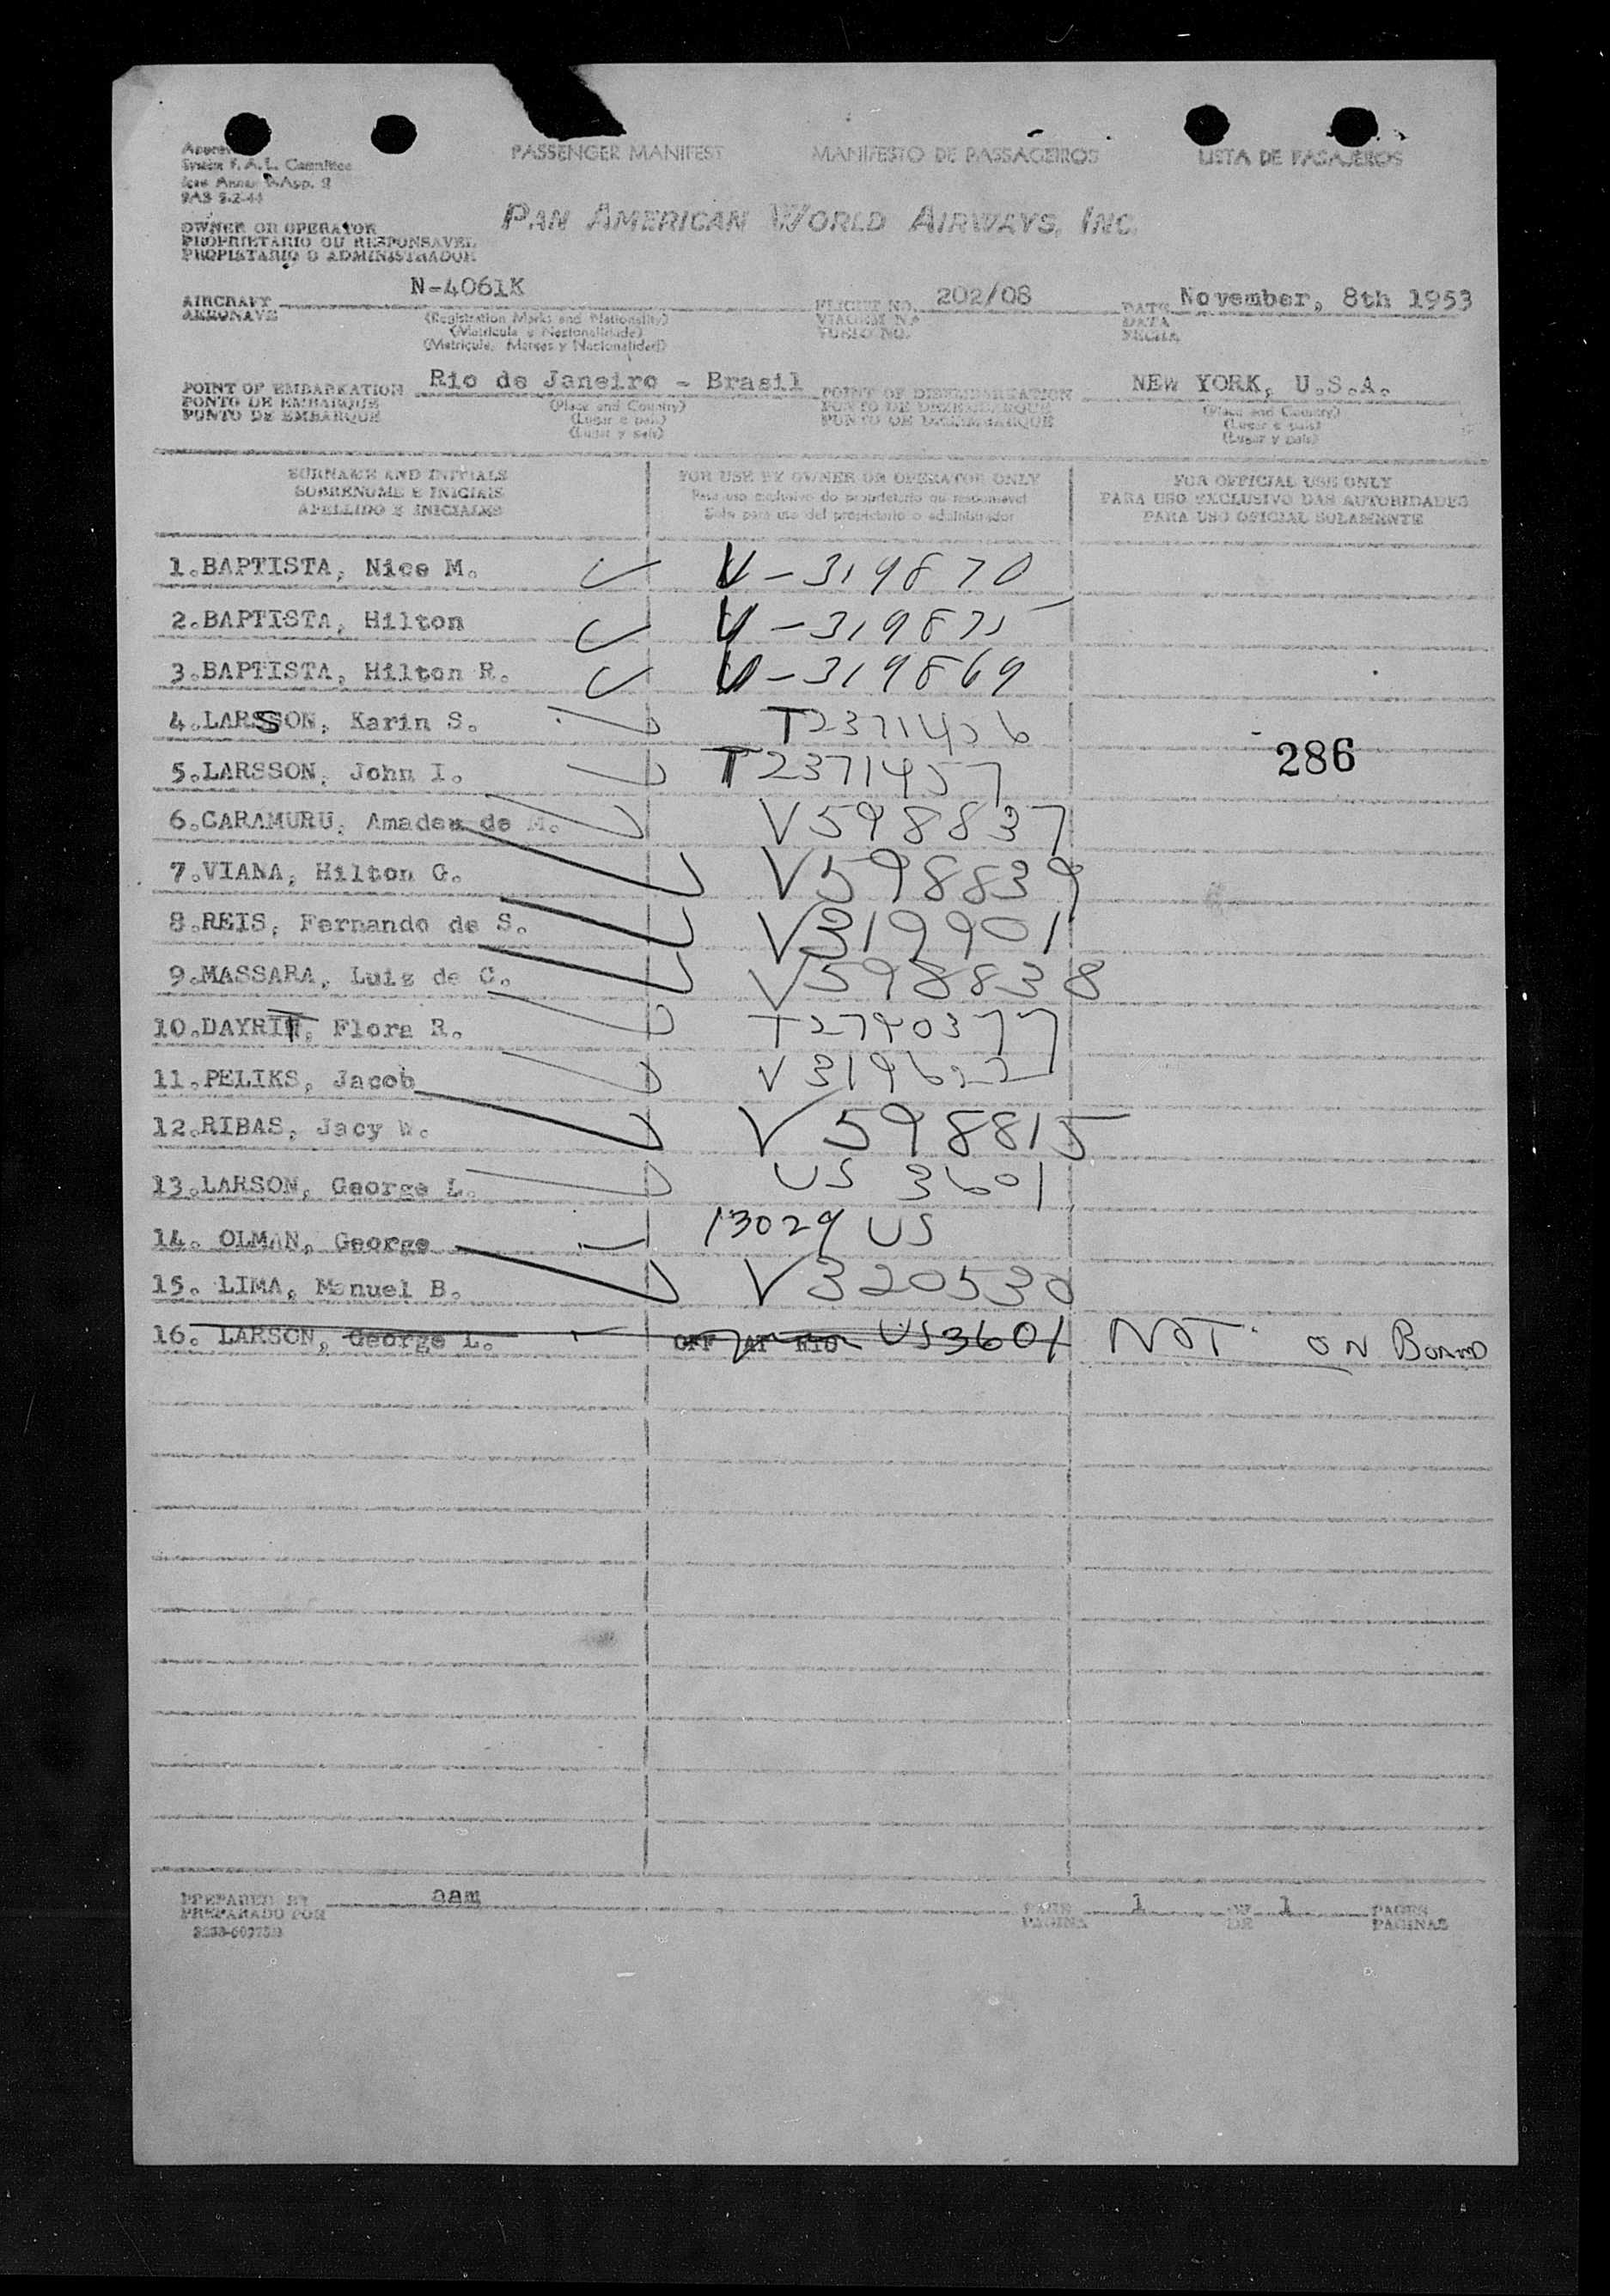 PASSENGER MANIFEST MANIFESTO DE PASSAGEIROS LISTA DE PASAJEROS
System F. A. L. Committee
9AS 5-2-44
PAN AMERICAN WORLD AIRWAYS, INC.
OWNER OR OPERATOR
PROPRIETARIO OU RESPONSAVEL
PROPIETARIO O ADMINISTRADOR
AIRCRAFT N-4061K FLIGHT NO. 202/08 DATE November, 8th 1953
AERONAVE (Registration Marks and Nationality) VIAGEM N.º DATA
(Matricula e Nacionalidade) VUELO NO. FECHA
(Matricula, Marcas y Nacionalidad)
POINT OF EMBARKATION Rio de Janeiro - Brasil POINT OF DISEMBARKATION NEW YORK, U.S.A.
PONTO DE EMBARQUE (Place and Country) PONTO DE DESEMBARQUE (Place and Country)
PUNTO DE EMBARQUE (Lugar e pais) PUNTO DE DESEMBARQUE (Lugar e pais)
(Lugar y pais) (Lugar y pais)
SURNAME AND INITIALS FOR USE BY OWNER OR OPERATOR ONLY FOR OFFICIAL USE ONLY
SOBRENOME E INICIAIS Para uso exclusivo do proprietario ou responsavel PARA USO EXCLUSIVO DAS AUTORIDADES
APELLIDO E INICIALES Solo para uso del propietario o administrador PARA USO OFICIAL SOLAMENTE
1.BAPTISTA, Nice M. V-319870
2.BAPTISTA, Hilton V-319871
3.BAPTISTA, Hilton R. V-319869
4.LARSSON, Karin S. T2371456
286
5.LARSSON, John I. T2371457
6.CARAMURU, Amadeu de M. V598837
7.VIANA, Hilton G. V598839
8.REIS, Fernando de S. V319901
9.MASSARA, Luiz de C. V598838
10.DAYRIT, Flora R. T2740377
11.PELIKS, Jacob V319622
12.RIBAS, Jacy W. V598815
13.LARSON, George L. US 3601
14. OLMAN, George 13029 US
15. LIMA, Manuel B. V320530
16. LARSON, George L. OFF AT RIO US3601 NOT ON BOARD
PREPARED BY aam PAGE 1 OF 1 PAGES
PREPARADO POR PAGINA DE PAGINAS